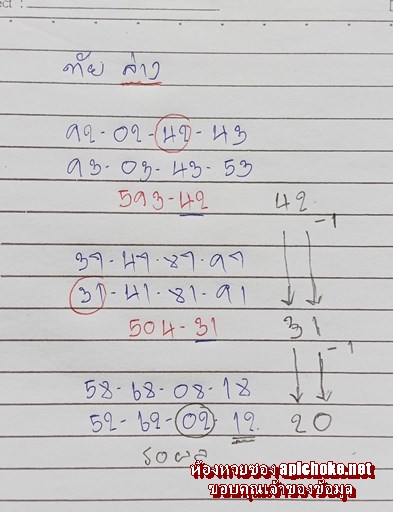 ect :
ทัย ล่าง
92-02-42-43
93-03-43-53
593-42 42
-1
37-47-87-97
31-41-81-91
504-31 31
-1
58-68-08-18
52-62-02-12. 20
รอผล
ห้องหวยซอง apichoke.net
ขอบคุณเจ้าของข้อมูล